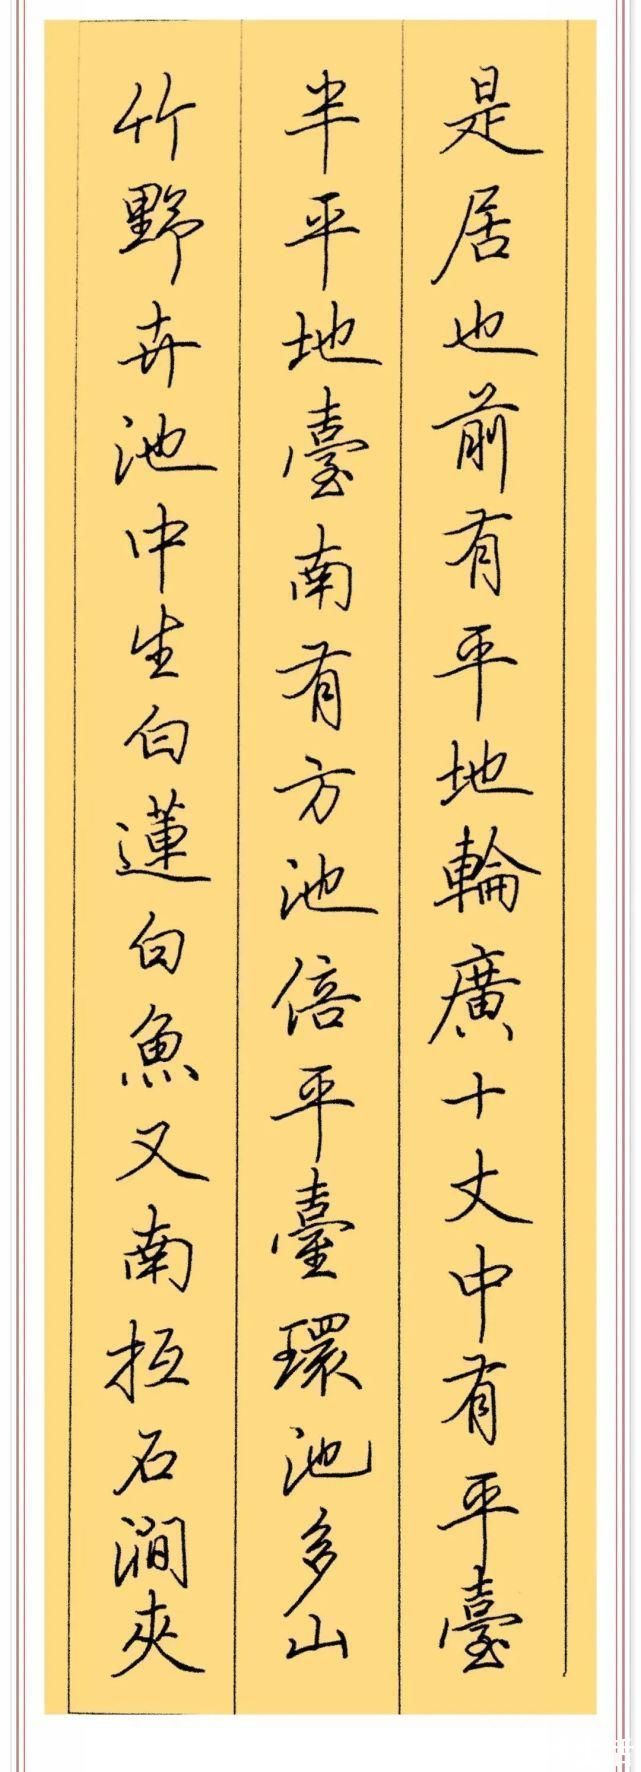 是居也前有平地輪廣十丈中有平臺
半平地臺南有方池倍平臺環池多山
竹野卉池中生白蓮白魚又南抵石澗夾